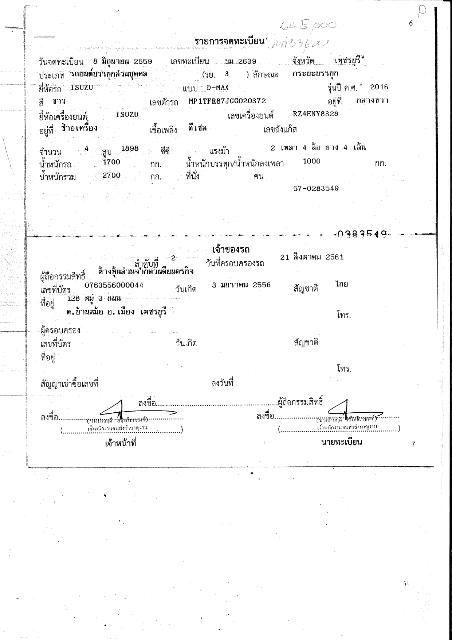 6
รายการจดทะเบียน
วันจดทะเบียน 8 มิถุนายน 2559 เลขทะเบียน 2639 จังหวัด เพชรบุรี
ประเภท รถยนต์บรรทุกส่วนบุคคล (รย. 3 ) ลักษณะ กระบะบรรทุก
ยี่ห้อรถ ISUZU แบบ D-MAX รุ่นปี ค.ศ. 2016
สี ขาว เลขตัวรถ MP1TFR87JGG020372 อยู่ที่ กลางขวา
ยี่ห้อเครื่องยนต์ ISUZU เลขเครื่องยนต์ RZ4ENY8328
อยู่ที่ ข้างเครื่อง เชื้อเพลิง ดีเซล เลขถังแก๊ส
จำนวน 4 สูบ 1898 ซีซี แรงม้า 2 เพลา 4 ล้อ ยาง 4 เส้น
น้ำหนักรถ 1700 กก. น้ำหนักบรรทุก/น้ำหนักลงเพลา 1000 กก.
น้ำหนักรวม 2700 กก. ที่นั่ง คน
57-0283549
0383549
เจ้าของรถ
ลำดับที่ 2 วันที่ครอบครองรถ 21 สิงหาคม 2561
ผู้ถือกรรมสิทธิ์
เลขที่บัตร 0763556000044 วันเกิด 3 มกราคม 2556 สัญชาติ ไทย
ที่อยู่ 128 หมู่ 3 ถนน
ต.บ้านหม้อ อ.เมือง เพชรบุรี โทร.
ผู้ครอบครอง
เลขที่บัตร วันเกิด สัญชาติ
ที่อยู่
โทร.
สัญญาเช่าซื้อเลขที่ ลงวันที่
ลงชื่อ ผู้ถือกรรมสิทธิ์
ลงชื่อ ลงชื่อ
เจ้าหน้าที่ นายทะเบียน